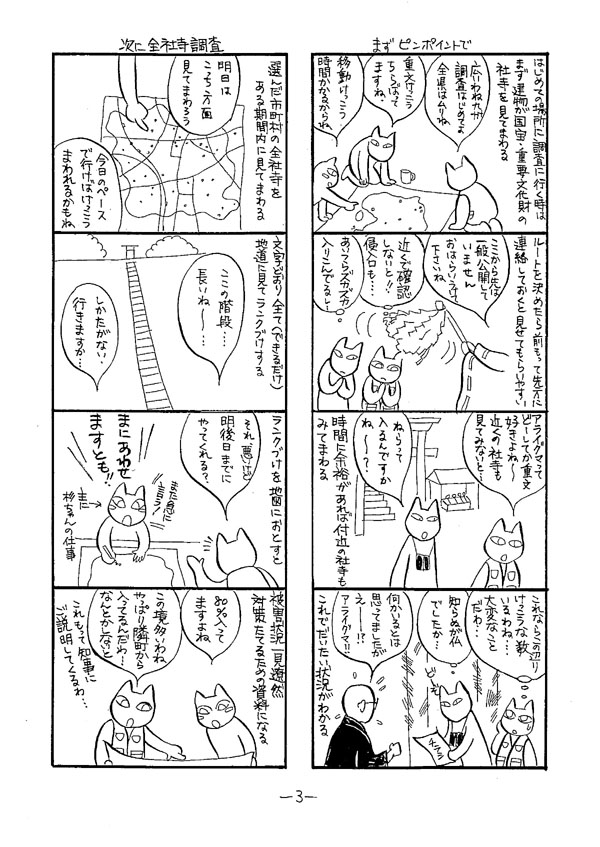 まず ピンポイントで
はじめての場所に調査に行く時は
まず建物が国宝・重要文化財の
社寺を見てまわる
広いわね九州
調査はじめてよ
全県はムリね
重文けっこう
ちらばって
ますね・
移動けっこう
時間かかるからね
ルートを決めたら前もって先方に
連絡しておくと見せてもらいやすい
ここから先は
一般公開して
いません
おはらいうけて
下さいね
近くで確認
しないと!!
侵入口も…
あいてらズカズカ
入りこんでるし…
アライグマって
どーしてか重文
好きよね〜
近くの社寺も
見てみないと…
ねらって
入るんですか
ね〜?
時間に余裕があれば付近の社寺も
みてまわる
これならこの辺り
けっこうな数
いるわね…
大変なこと
だわ…
知らぬが仏
でしたか…
何かいるとは
思ってましたが
えーー!?
アーライグマで!!
どーぞ
チラシ
これでだいたい状況がわかる
次に 全社寺調査
選んだ市町村の全社寺を
ある期間内に見てまわる
明日は
こっち方面
見てまわろう
今日のペース
で行けばけっこう
まわれるかもね
文字どおり全て(できるだけ)
地道に見てランクづけする
ここの階段…
長いね〜…
しかたがない・
行きますか…
ランクづけを地図におとすと
それ、悪いけど
明後日までに
やってくれる?
また急に
言う!
まにあわせ
ますとも!!
主に
杉ちゃんの仕事
被害状況一見瞭然
対策たてるための資料になる
80%入って
ますよね
この境多いわね
やっぱり隣町から
入ってるんだわ…
なんとかしないと
これもって知事に
ご説明してくるわ…
—3—